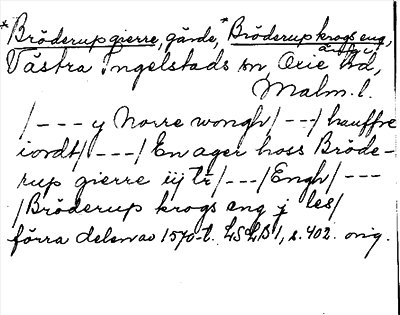 *Bröderup gierre, gärde, *Bröderup krogs eng,
Västra Ingelstads sn, Oxie hd,
Malm. l.
/--- y Norre wongh/---/ hauffre
iordt/---/ En ager hoss Bröde-
rup gierre iij tr/---/Engh/---
/Bröderup krogs eng j les/
förra delen av 1570-t. LSLB 1, s. 402. orig.